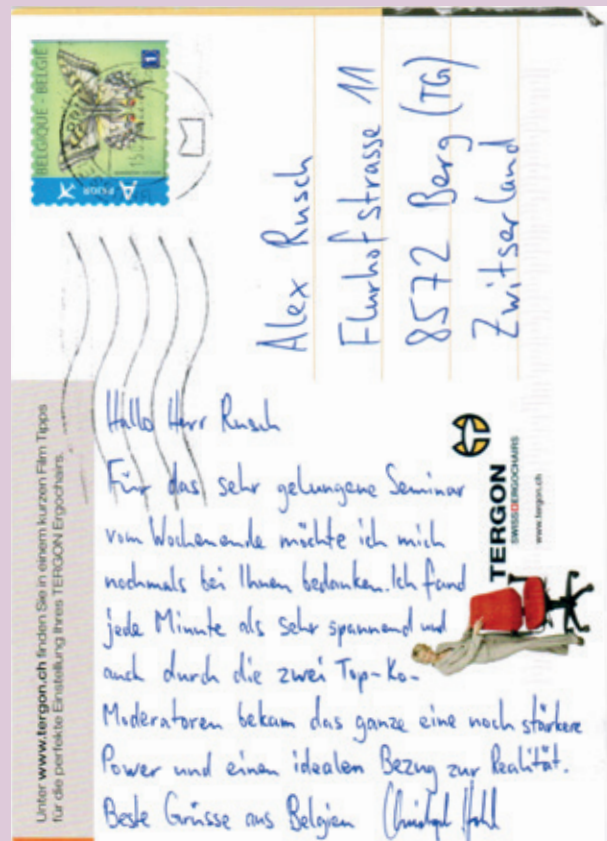 BELGIQUE - BELGIË
1
A PRIOR
Alex Rusch
Flurhofstrasse 11
8572 Berg (TG)
Zwitserland
Unter www.tergon.ch finden Sie in einem kurzen Film Tipps
für die perfekte Einstellung Ihres TERGON Ergochairs.
TERGON
SWISS ERGOCHAIRS
www.tergon.ch
Hallo Herr Rusch
Für das sehr gelungene Seminar
vom Wochenende möchte ich mich
nochmals bei Ihnen bedanken. Ich fand
jede Minute als sehr spannend und
auch durch die zwei Top-Ko-
Moderatoren bekam das ganze eine noch stärkere
Power und einen idealen Bezug zur Realität.
Beste Grüsse aus Belgien